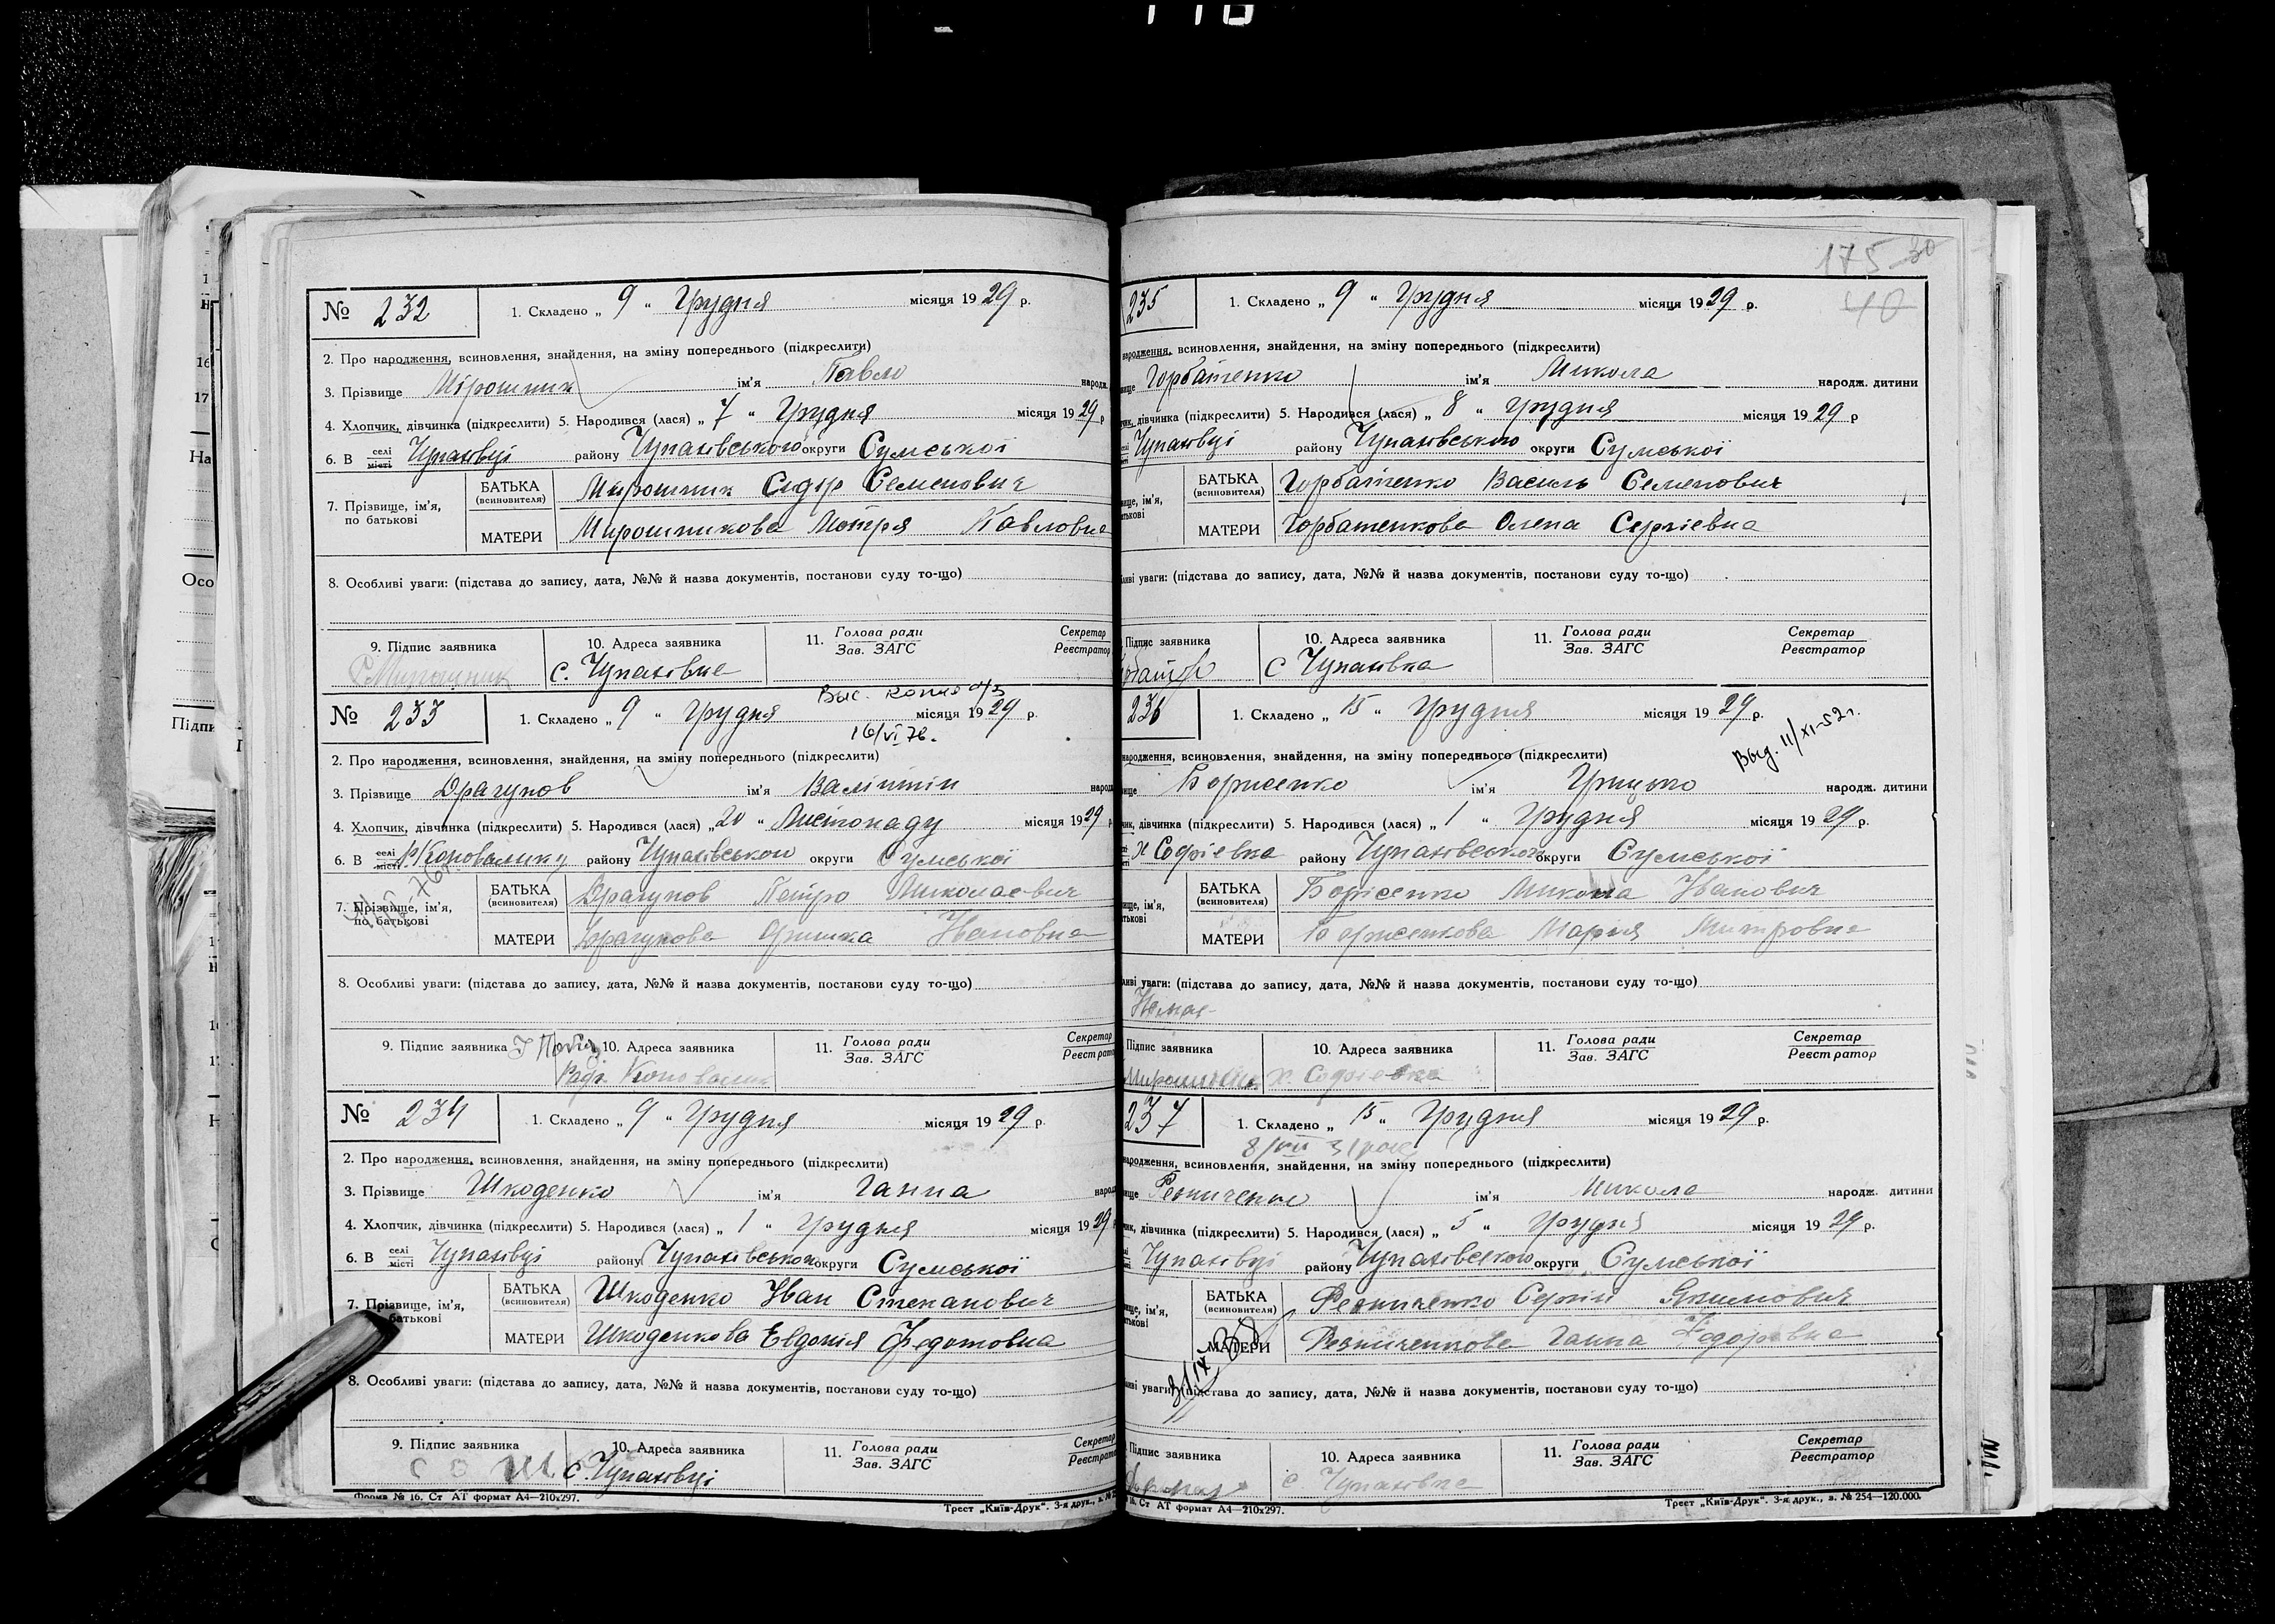 № 232
1. Складено „ 9 “ Грудня місяця 19 29 р.
2. Про народження, всиновлення, знайдення, на зміну попереднього (підкреслити)
3. Прізвище Мірошник ім'я Павло народж.
4. Хлопчик, дівчинка (підкреслити) 5. Народився (лася) „ 7 “ Грудня місяця 19 29 р
6. В селі місті Чупахівці району Чупахівського округи Сумської
7. Прізвище, ім'я, по батькові
БАТЬКА (всиновителя) Мирошник Сидір Семенович
МАТЕРИ Мирошникова Мотря Павловна
8. Особливі уваги: (підстава до запису, дата, №№ й назва документів, постанови суду то-що)
9. Підпис заявника
10. Адреса заявника
11. Голова ради Зав. ЗАГС
Секретар Реєстратор
с. Чупахівка
№ 233
1. Складено „ 9 “ Грудня місяця 19 29 р.
Выс. копия
16/VI 76.
2. Про народження, всиновлення, знайдення, на зміну попереднього (підкреслити)
3. Прізвище Драгунов ім'я Валінтін народ
4. Хлопчик, дівчинка (підкреслити) 5. Народився (лася) „ 20 “ Листопаду місяця 19 29 р
6. В селі місті району Чупахівського округи Сумської
7. Прізвище, ім'я, по батькові
БАТЬКА (всиновителя) Драгунов Петро Миколаевич
МАТЕРИ Драгунова Оришка Івановна
8. Особливі уваги: (підстава до запису, дата, №№ й назва документів, постанови суду то-що)
9. Підпис заявника
10. Адреса заявника
11. Голова ради Зав. ЗАГС
Секретар Реєстратор
№ 234
1. Складено „ 9 “ Грудня місяця 19 29 р.
2. Про народження, всиновлення, знайдення, на зміну попереднього (підкреслити)
3. Прізвище Шкоденко ім'я Ганна народ
4. Хлопчик, дівчинка (підкреслити) 5. Народився (лася) „ 1 “ Грудня місяця 19 29
6. В селі місті Чупахівці району Чупахівського округи Сумської
7. Прізвище, ім'я, батькові
БАТЬКА (всиновителя) Шкоденко Іван Степанович
МАТЕРИ Шкоденкова Евдокія Федотовна
8. Особливі уваги: (підстава до запису, дата, №№ й назва документів, постанови суду то-що)
9. Підпис заявника
10. Адреса заявника
11. Голова ради Зав. ЗАГС
Секретар Реєстратор
с. Чупахівці
Форма № 16. Ст АТ формат А4—210x297.
Трест „Київ-Друк“. 3-я друк., з. №
175
30
40
235
1. Складено „ 9 “ Грудня місяця 19 29 р.
народження, всиновлення, знайдення, на зміну попереднього (підкреслити)
Горбатенко ім'я Микола народж. дитини
дівчинка (підкреслити) 5. Народився (лася) „ 8 “ Грудня місяця 19 29 р
Чупахівці району Чупахівського округи Сумської
БАТЬКА (всиновителя) Горбатенко Василь Семенович
МАТЕРИ Горбатенкова Олена Сергіевна
уваги: (підстава до запису, дата, №№ й назва документів, постанови суду то-що)
Підпис заявника
10. Адреса заявника
11. Голова ради Зав. ЗАГС
Секретар Реєстратор
с Чупахівка
236
1. Складено „ 15 “ Грудня місяця 19 29 р.
Выд. 11/XI-52 г.
народження, всиновлення, знайдення, на зміну попереднього (підкреслити)
Борисенко ім'я Грицько народж. дитини
дівчинка (підкреслити) 5. Народився (лася) „ 1 “ Грудня місяця 19 29 р.
х Софіевка району Чупахівського округи Сумської
БАТЬКА (всиновителя) Борисенко Микола Іванович
МАТЕРИ Борисенкова Мария Митровна
уваги: (підстава до запису, дата, №№ й назва документів, постанови суду то-що)
Немає
Підпис заявника
10. Адреса заявника
11. Голова ради Зав. ЗАГС
Секретар Реєстратор
х. Софіевка
237
1. Складено „ 15 “ Грудня місяця 19 29 р.
народження, всиновлення, знайдення, на зміну попереднього (підкреслити)
Резниченко ім'я Микола народж. дитини
дівчинка (підкреслити) 5. Народився (лася) „ 5 “ Грудня місяця 19 29 р.
Чупахівці району Чупахівського округи Сумської
БАТЬКА (всиновителя) Резниченко Сергій Якимович
МАТЕРИ Резниченкова Ганна Федоровна
уваги: (підстава до запису, дата, №№ й назва документів, постанови суду то-що)
Підпис заявника
10. Адреса заявника
11. Голова ради Зав. ЗАГС
Секретар Реєстратор
с Чупахівка
16. Ст АТ формат А4—210x297.
Трест „Київ-Друк“. 3-я друк., з. № 254—120.000.